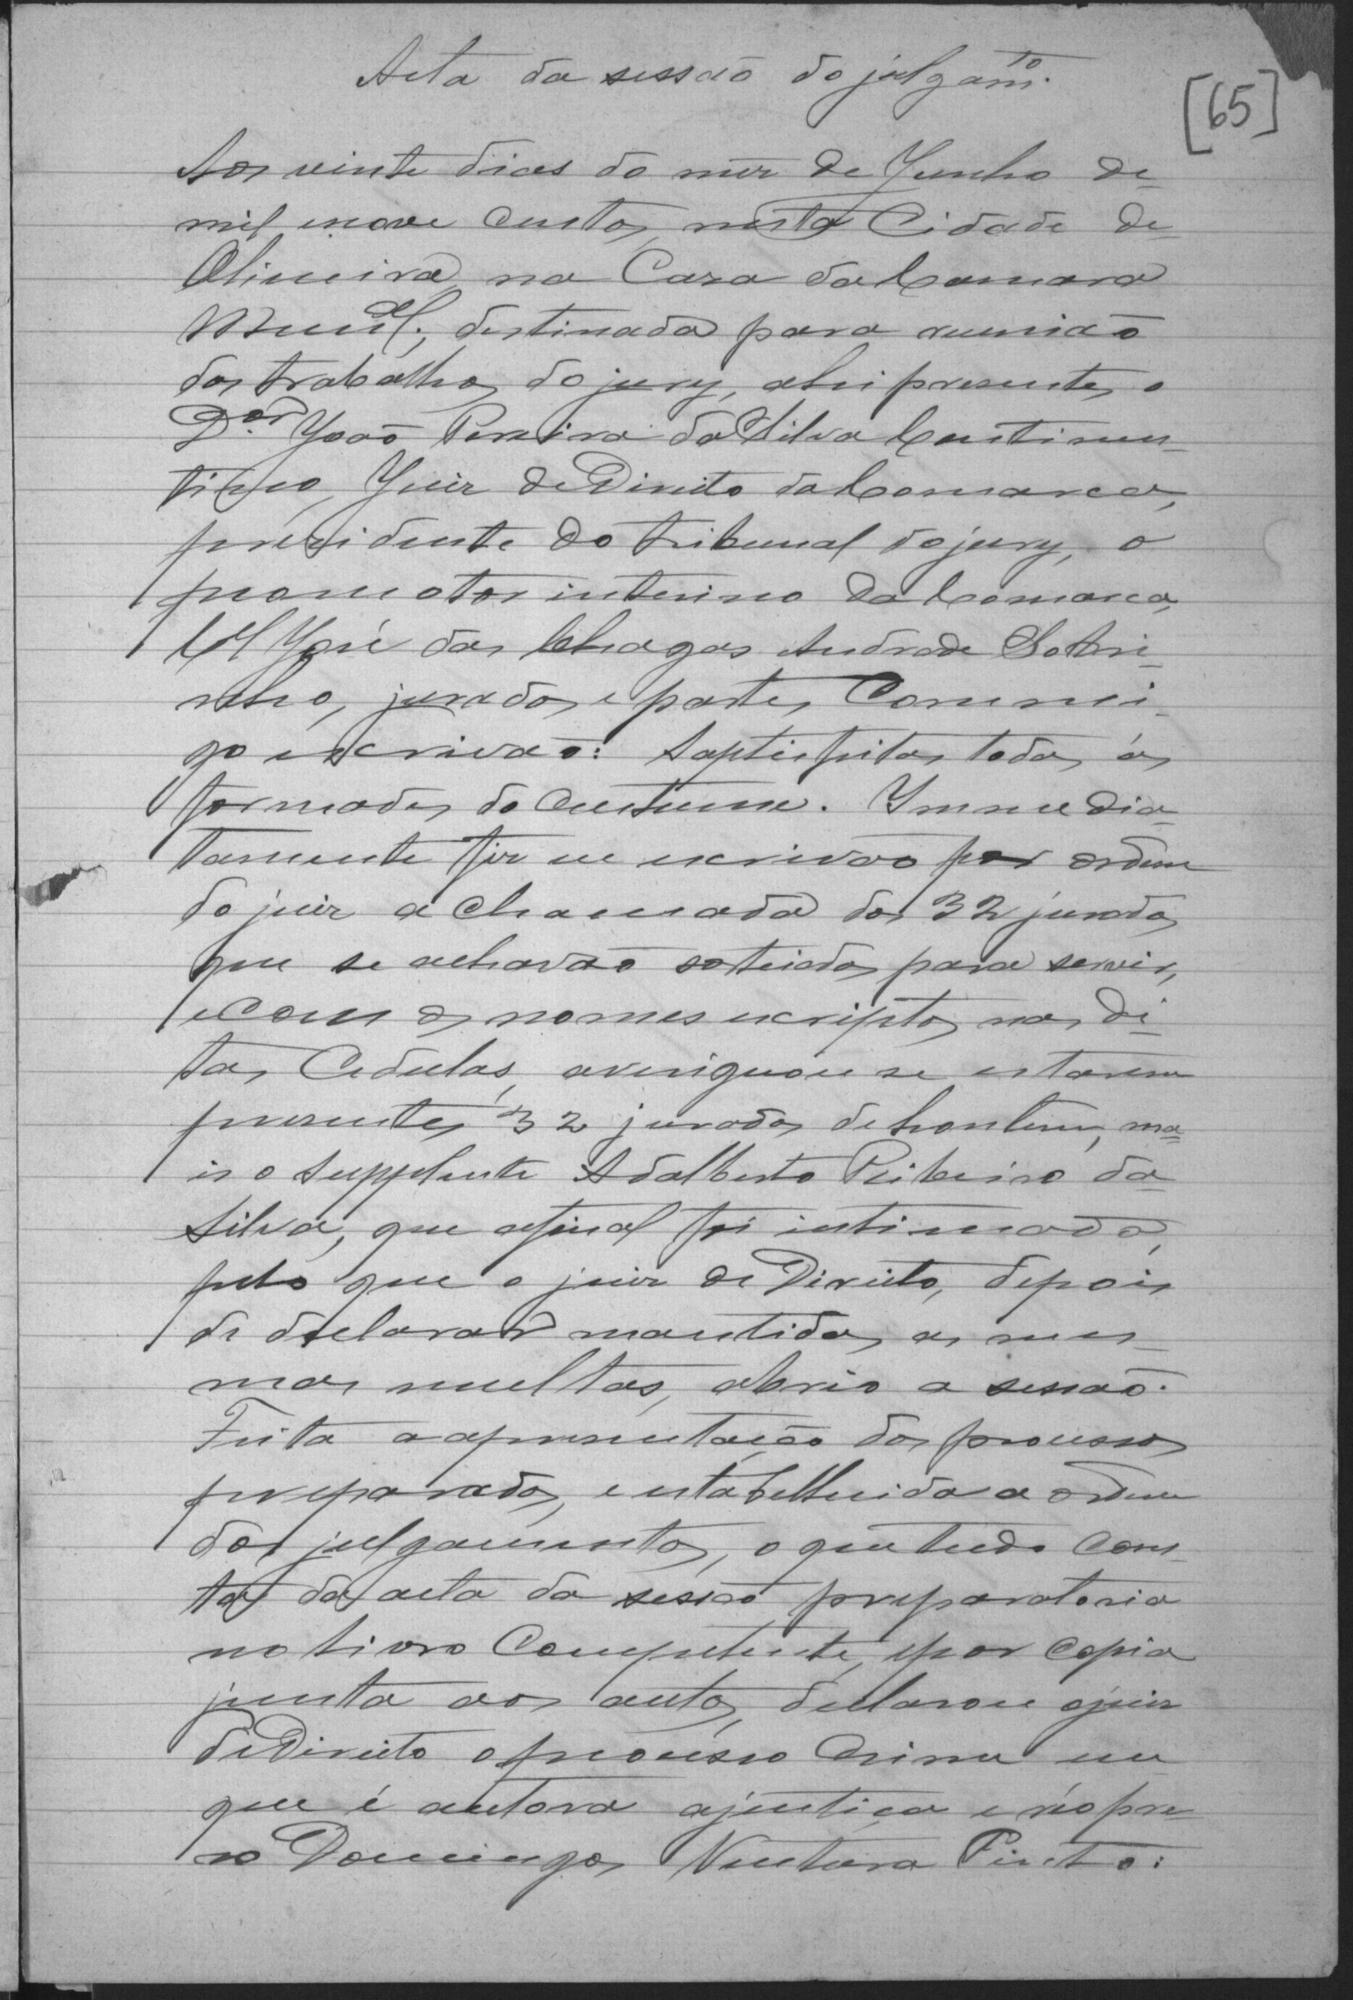 Acta da sessão do julgamto.
[65]
Aos vinte dias do mez de Junho de
mil e nove centos, nesta Cidade de
Oliveira, na Caza da Camara
Munal., destinada para reunião
dos trabalhos do jury, ahi presentes o
Dor. João Pereira da Silva Continen-
tino, Juiz de Direito da Comarca,
prezidente do tribunal do jury, o
promotor interino da Comarca,
Cel José das Chagas Andrade Sobri-
nho, jurados e partes, Commi-
go escrivão: Saptisfeitas todas ás
formades do custume. Immedia-
tamente fiz eu escrivão por ordem
do juiz a chamada dos 32 jurados
que se achavão sorteiados para servir,
e com os nomes escriptos nas di-
tas Cedulas, averiguou se estarem
presentes 32 jurados de hontem, ma-
is o supplente Adalberto Ribeiro da
Silva, que afinal foi intimado,
pelo que o juiz de Direito, depois
de declarar mantidas as mes-
mas multas, abrio a sessão.
Feita a apresentação dos processos
preparados, e estabellecida a ordem
dos julgamentos, o que tudo cons-
ta da acta da sessão preparatoria
no livro Competente, e por copia
junta aos autos, declarou o juiz
de Direito o processo crime em
que é autora a justiça e réo pre-
so Domingos Ventura Pinto: